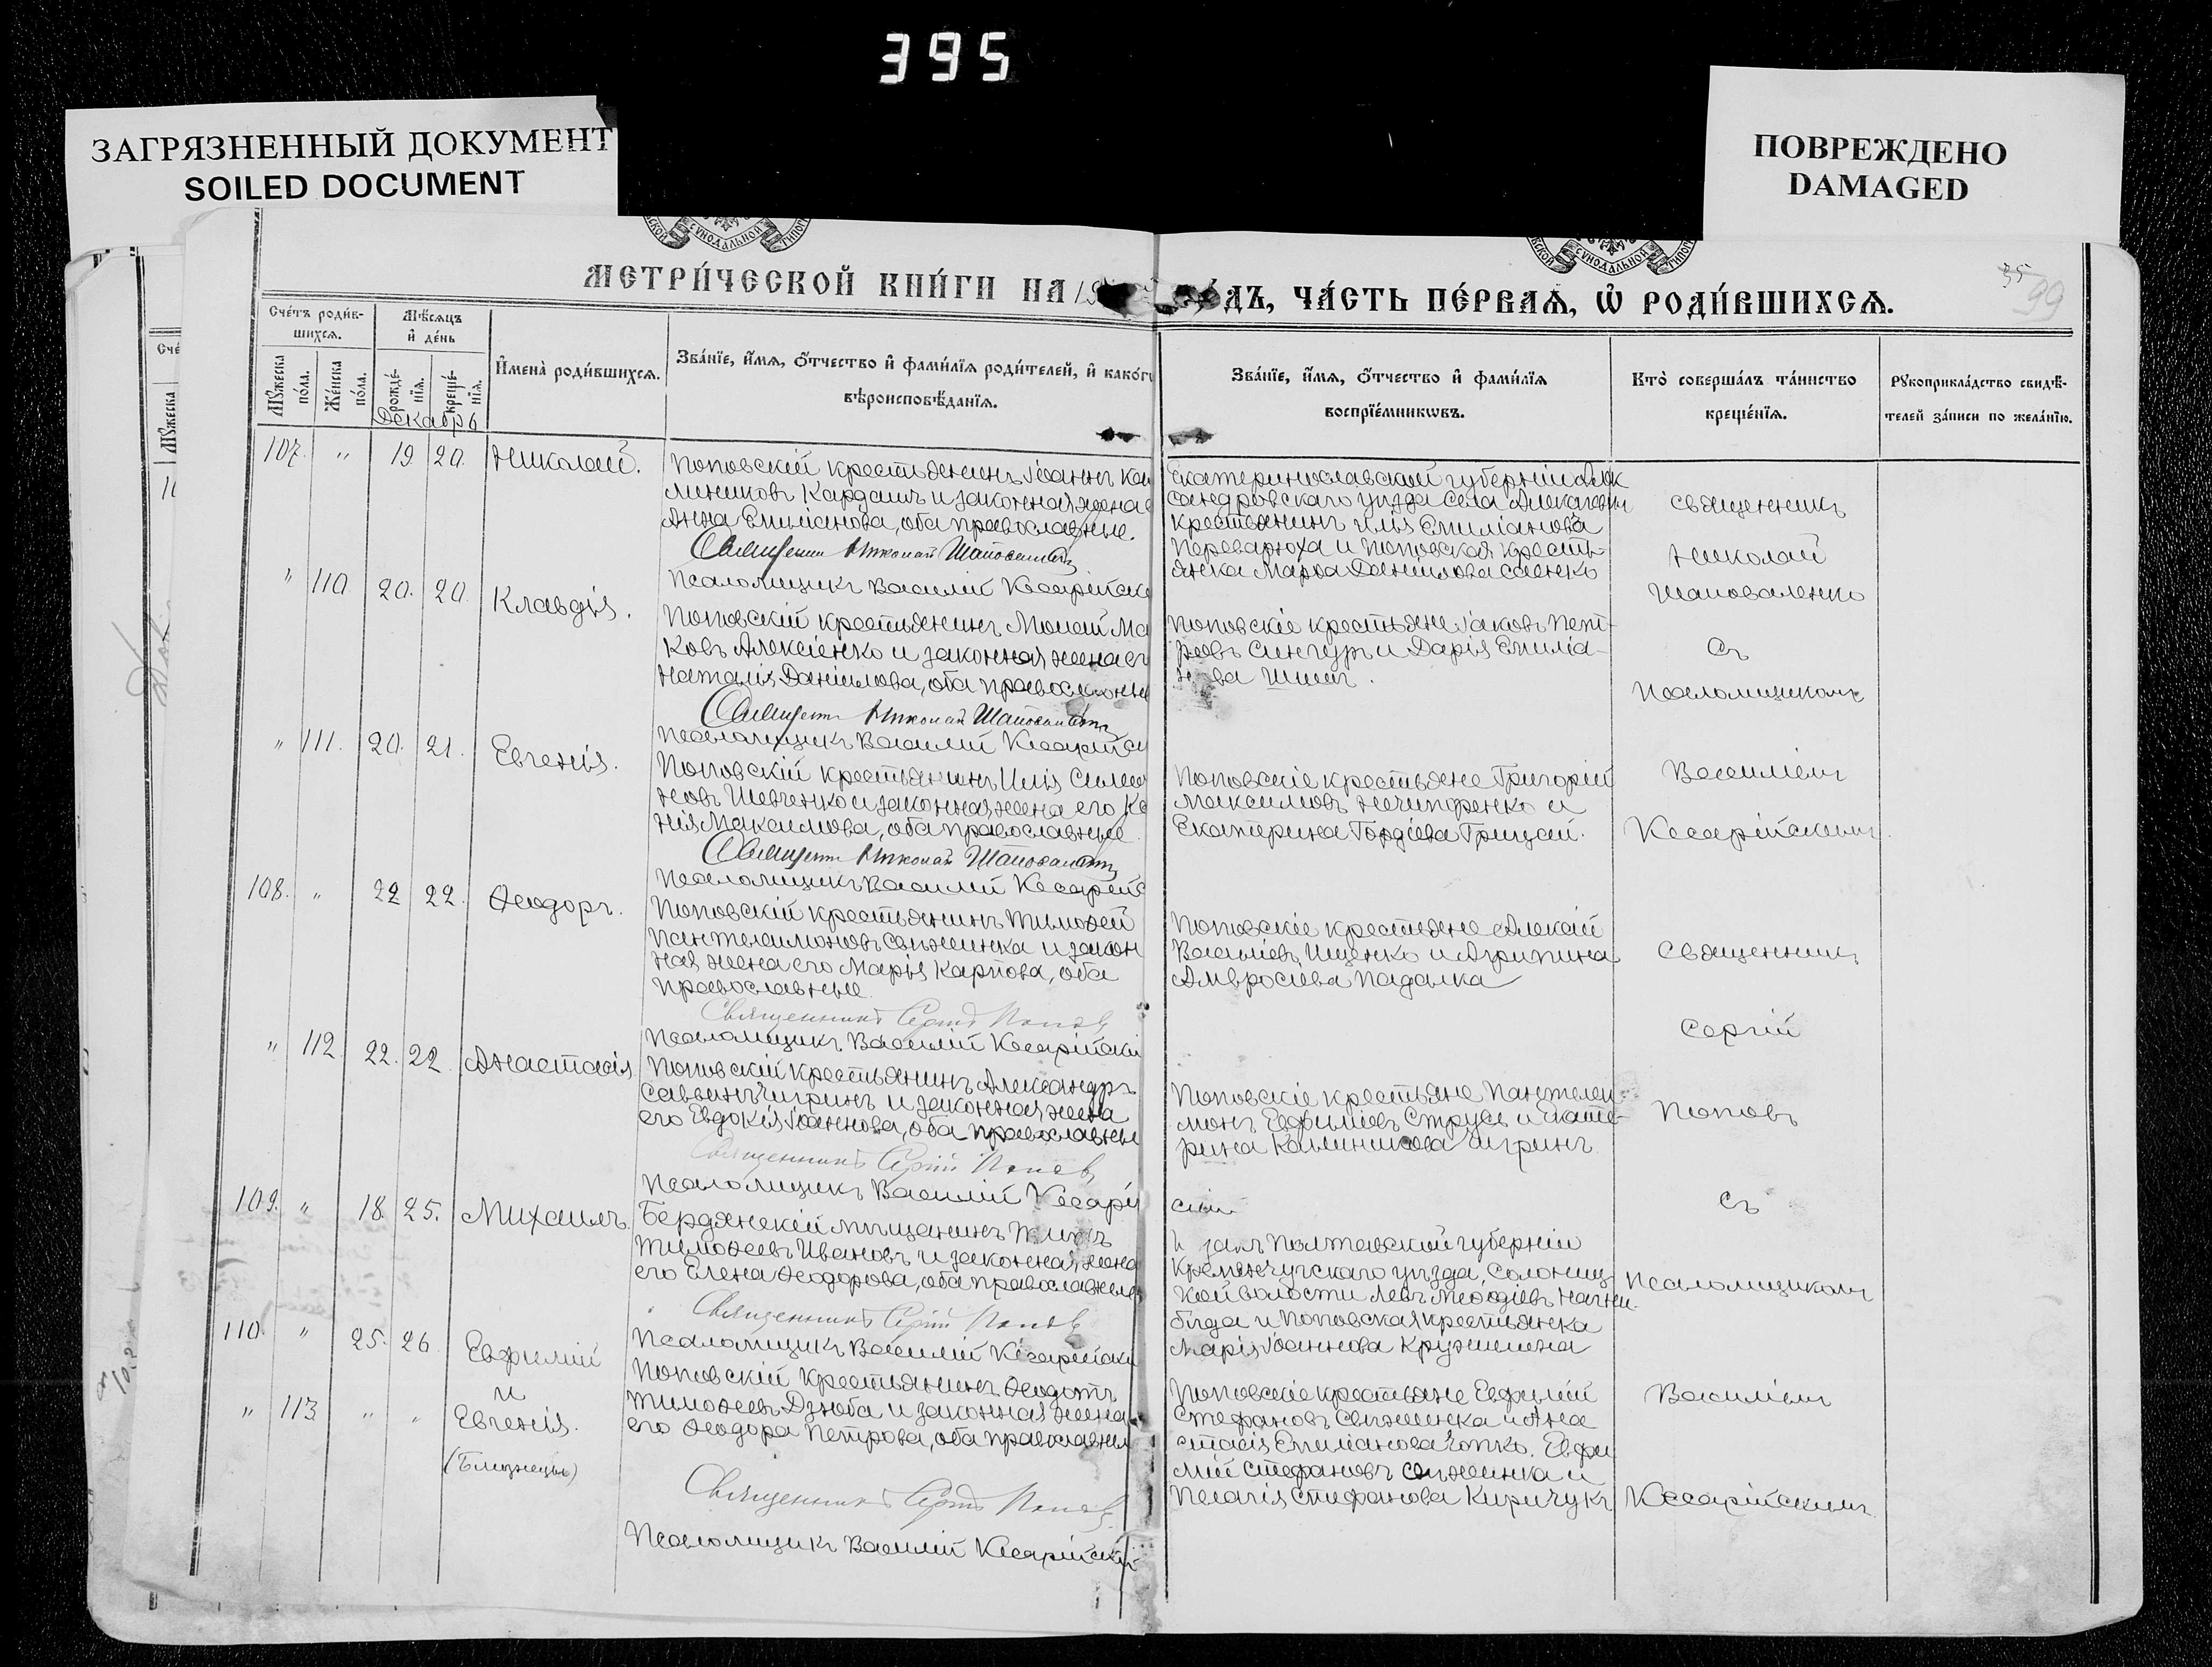 395
ЗАГРЯЗНЕННЫЙ ДОКУМЕНТ
SOILED DOCUMENT
ПОВРЕЖДЕНО
DAMAGED
МЕТРИ́ЧЕСКОЙ КНИ́ГИ НА 19
ДЪ, ЧА́СТЬ ПЕ́РВАѦ, Ѡ҆ РОДИ́ВШИХСѦ.
35
99
Сче́тъ роди́в-
шихсѧ.
Мѣ́сѧцъ
и҆ де́нь
Мꙋ́жеска
по́ла.
Же́нска
по́ла.
рожде́-
нїѧ.
креще́-
нїѧ.
Декабрь
И҆мена̀ роди́вшихсѧ.
Зва́нїе, и҆́мѧ, ѻ҆́тчество и҆ фами́лїѧ роди́телей, и҆ како́гѡ
вѣроисповѣ́данїѧ.
Зва́нїе, и҆́мѧ, ѻ҆́тчество и҆ фами́лїѧ
воспрїе́мникѡвъ.
Кто̀ соверша́лъ та́инство
креще́нїѧ.
Рꙋкоприкла́дство свидѣ́-
телей за́писи по жела́нїю.
107. " 19 20. Николай.
Поповскій крестьянинъ Іоаннъ Кал
линиковъ Кардашъ и законная жена
Анна Емиліанова, оба православные.
Священник Николай Шаповаленко
Псаломщикъ Василій Кесарійск
Екатеринославской губерніи Алек
сандровскаго уѣзда села
крестьянинъ Илья Емиліановъ
Переварюха и Поповская кресть-
янка Марѳа Даніилова Саенко
Священникъ
Николай
Шаповаленко
" 110 20. 20. Клавдія.
Поповскій крестьянинъ Моисей Ма
ковъ Алексіенко и законная жена его
Наталія Даніилова, оба православны
Священник Николай Шаповаленко
Псаломщикъ Василій Кесарійск
Поповскіе крестьяне Іаковъ Пет-
ровъ Сингуръ и Дарія Емиліа-
нова Шиш
Съ
Псаломщикомъ
" 111. 20. 21. Евгенія.
Поповскій крестьянинъ Илія Симео
новъ Шевченко и законная жена его Ксе
нія Максимова, оба православные
Священник Николай Шаповаленко
Псаломщикъ Василій Кесарійс
Поповскіе крестьяне Григорій
Максимовъ Ничипоренко и
Екатерина Гордіева Грицай.
Василіемъ
Кесарійскимъ.
108. " 22 22. Ѳеодоръ.
Поповскій крестьянинъ Тимоѳей
Пантелеимоновъ Свѣженка и закон
ная жена его Марія Карпова, оба
православные
Священникъ Сергій Поповъ
Псаломщикъ Василій Кесарійскі
Поповскіе крестьяне Алексій
Василіевъ Ищенко и Агрипина
Амвросіева Падалка
Священникъ
Сергій
" 112 22. 22 Анастасія
Поповскій крестьянинъ Александръ
Саввинъ Чигринъ и законная жена
его Евдокія Іоаннова, оба православны
Священникъ Сергій Поповъ
Псаломщикъ Василій Кесарій
скій
Поповскіе крестьяне Пантелеи-
монъ Евфиміевъ Струсь и Екате-
рина Каллиникова Чигринъ
Поповъ
съ
109. " 18. 25. Михаилъ.
Бердянскій мѣщанинъ
Тимоѳеевъ Ивановъ и законная жена
его Елена Ѳеодорова, оба православные
Священникъ Сергій Поповъ
Псаломщикъ Василій Кесарійскі
Полтавской губерніи
Кременчугскаго уѣзда, Солониц
кой волости Левъ Меѳодіевъ Нагни-
бѣда и Поповская крестьянка
Марія Іоаннова Кружилина
Псаломщикомъ
110. " 25. 26 Евфимій
и
" 113 " " Евгенія.
(Близнецы)
Поповскій крестьянинъ Ѳеодотъ
Тимоѳеевъ Дзюба и законная жена
его Ѳеодора Петрова, оба православны
Священникъ Сергій Поповъ
Псаломщикъ Василій Кесарійскій
Поповскіе крестьяне Евфимій
Стефановъ Свѣженка и Ана
стасія Емиліанова Чопко. Евфи
мій Стефановъ Свѣженка и
Пелагія Стефанова Киричукъ
Василіемъ
Кесарійскимъ